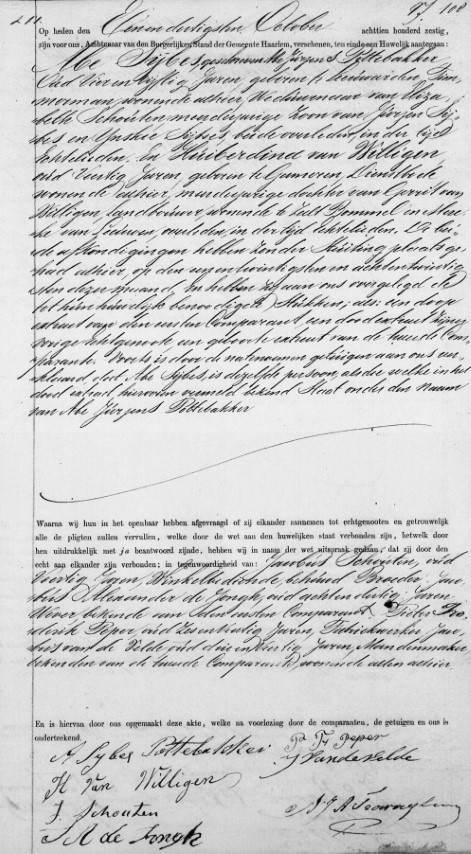 97 108
Op heden den Eenendertigsten October achttien honderd zestig,
zijn voor ons, Ambtenaar van den Burgerlijken Stand der Gemeente Haarlem, verschenen, ten einde een Huwelijk aantegaan:
Abe Sijbes genaamd Jurjens Pottebakker
Oud Vier en Vijftig Jaren, geboren te Leeuwarden, Tim
merman, wonende alhier, Weduwnaar van Eliza
beth Schouten, meerderjarige zoon van Jurjen Sij
bes en Sijbes, beide overleden, in der tijd
echtelieden. En Huiberdina van Willigen,
oud Veertig Jaren, geboren te Gameren, Dienstbode
wonende alhier, meerderjarige dochter van Gerrit van
Willigen, Landbouwer, wonende te Zalt Bommel en Marie
ke van Leeuwen, overleden, in der tijd echtelieden. De bei
de afkondigingen hebben zonder stuiting plaats ge
had alhier, op den een en twintigsten en acht en twintig
sten dezer maand. En hebben zij aan ons overgelegd de
tot hun huwelijk benoodigde stukken; als: een doop
extract van den eersten Comparant, een dood extract zijner
vorige echtgenoote en geboorte extract van de tweede Com
parante. Voorts is door de natenoemen getuigen aan ons ver
klaard, dat Abe Sijbes, is dezelfde persoon, als die welke in het
dood extract hierboven vermeld bekend staat onder den naam
van Abe Jurjens Pottebakker
Waarna wij hun in het openbaar hebben afgevraagd of zij elkander aannemen tot echtgenooten en getrouwelijk
alle de pligten zullen vervullen, welke door de wet aan den huwelijken staat verbonden zijn, hetwelk door
hen uitdrukkelijk met ja beantwoord zijnde, hebben wij in naam der wet uitspraak gedaan, dat zij door den
echt aan elkander zijn verbonden; in tegenwoordigheid van: Jacobus Schouten, oud
Veertig Jaren, Winkelbediende, behuwd Broeder, Jaco
bus Alexander de Jongh, oud acht en dertig Jaren
Wever, bekende van den eersten Comparant, Pieter Fre
derik Peper, oud Zes en Veertig Jaren, Fabriekwerker, Jaco
bus van de Velde, oud drie en Veertig Jaren, Mandenmaker
bekenden van de tweede Comparante, wonende allen alhier.
En is hiervan door ons opgemaakt deze akte, welke na voorlezing door de comparanten, de getuigen en ons is
onderteekend.
A Sybes Pottebakker
P F Peper
J Vandevelde
H Van Willigen
J. Schouten
J A de Jongh